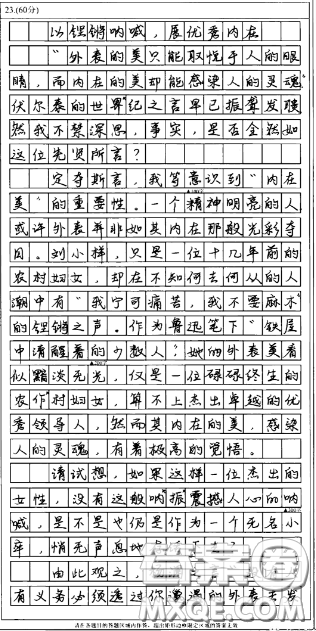 23.(60分)
以铿锵呐喊，展优秀内在
"外表的美只能取悦于人的眼
睛，而内在的美却能感染人的灵魂"
伏尔泰的世界纪之言早已振聋发聩
然我不禁深思，事实，是否全然如
这位先贤所言？
定夺斯言，我笃意识到"内在
美"的重要性。一个精神明亮的人
或许外表并非如其内在那般光彩夺
目。刘小样，只是一位十几年前的
农村妇女，却在不知何去何从的人
潮中有"我宁可痛苦，我不要麻木"
的铿锵之声。作为鲁迅笔下"铁屋
中清醒着的少数人"，她的外表美看
似黯淡无光，仅是一位碌碌终生的
农作村妇女，算不上杰出卓越的优
秀领导人，然而其内在的美，感染
人的灵魂，有着极高的觉悟。
请试想，如果这样一位杰出的
女性，没有这般呐振震撼人心的呐
喊，是不是也仍是作为一个无名小
卒，悄无声息地
由此观之，
有义务必须透过你
的外表去发
答案圈